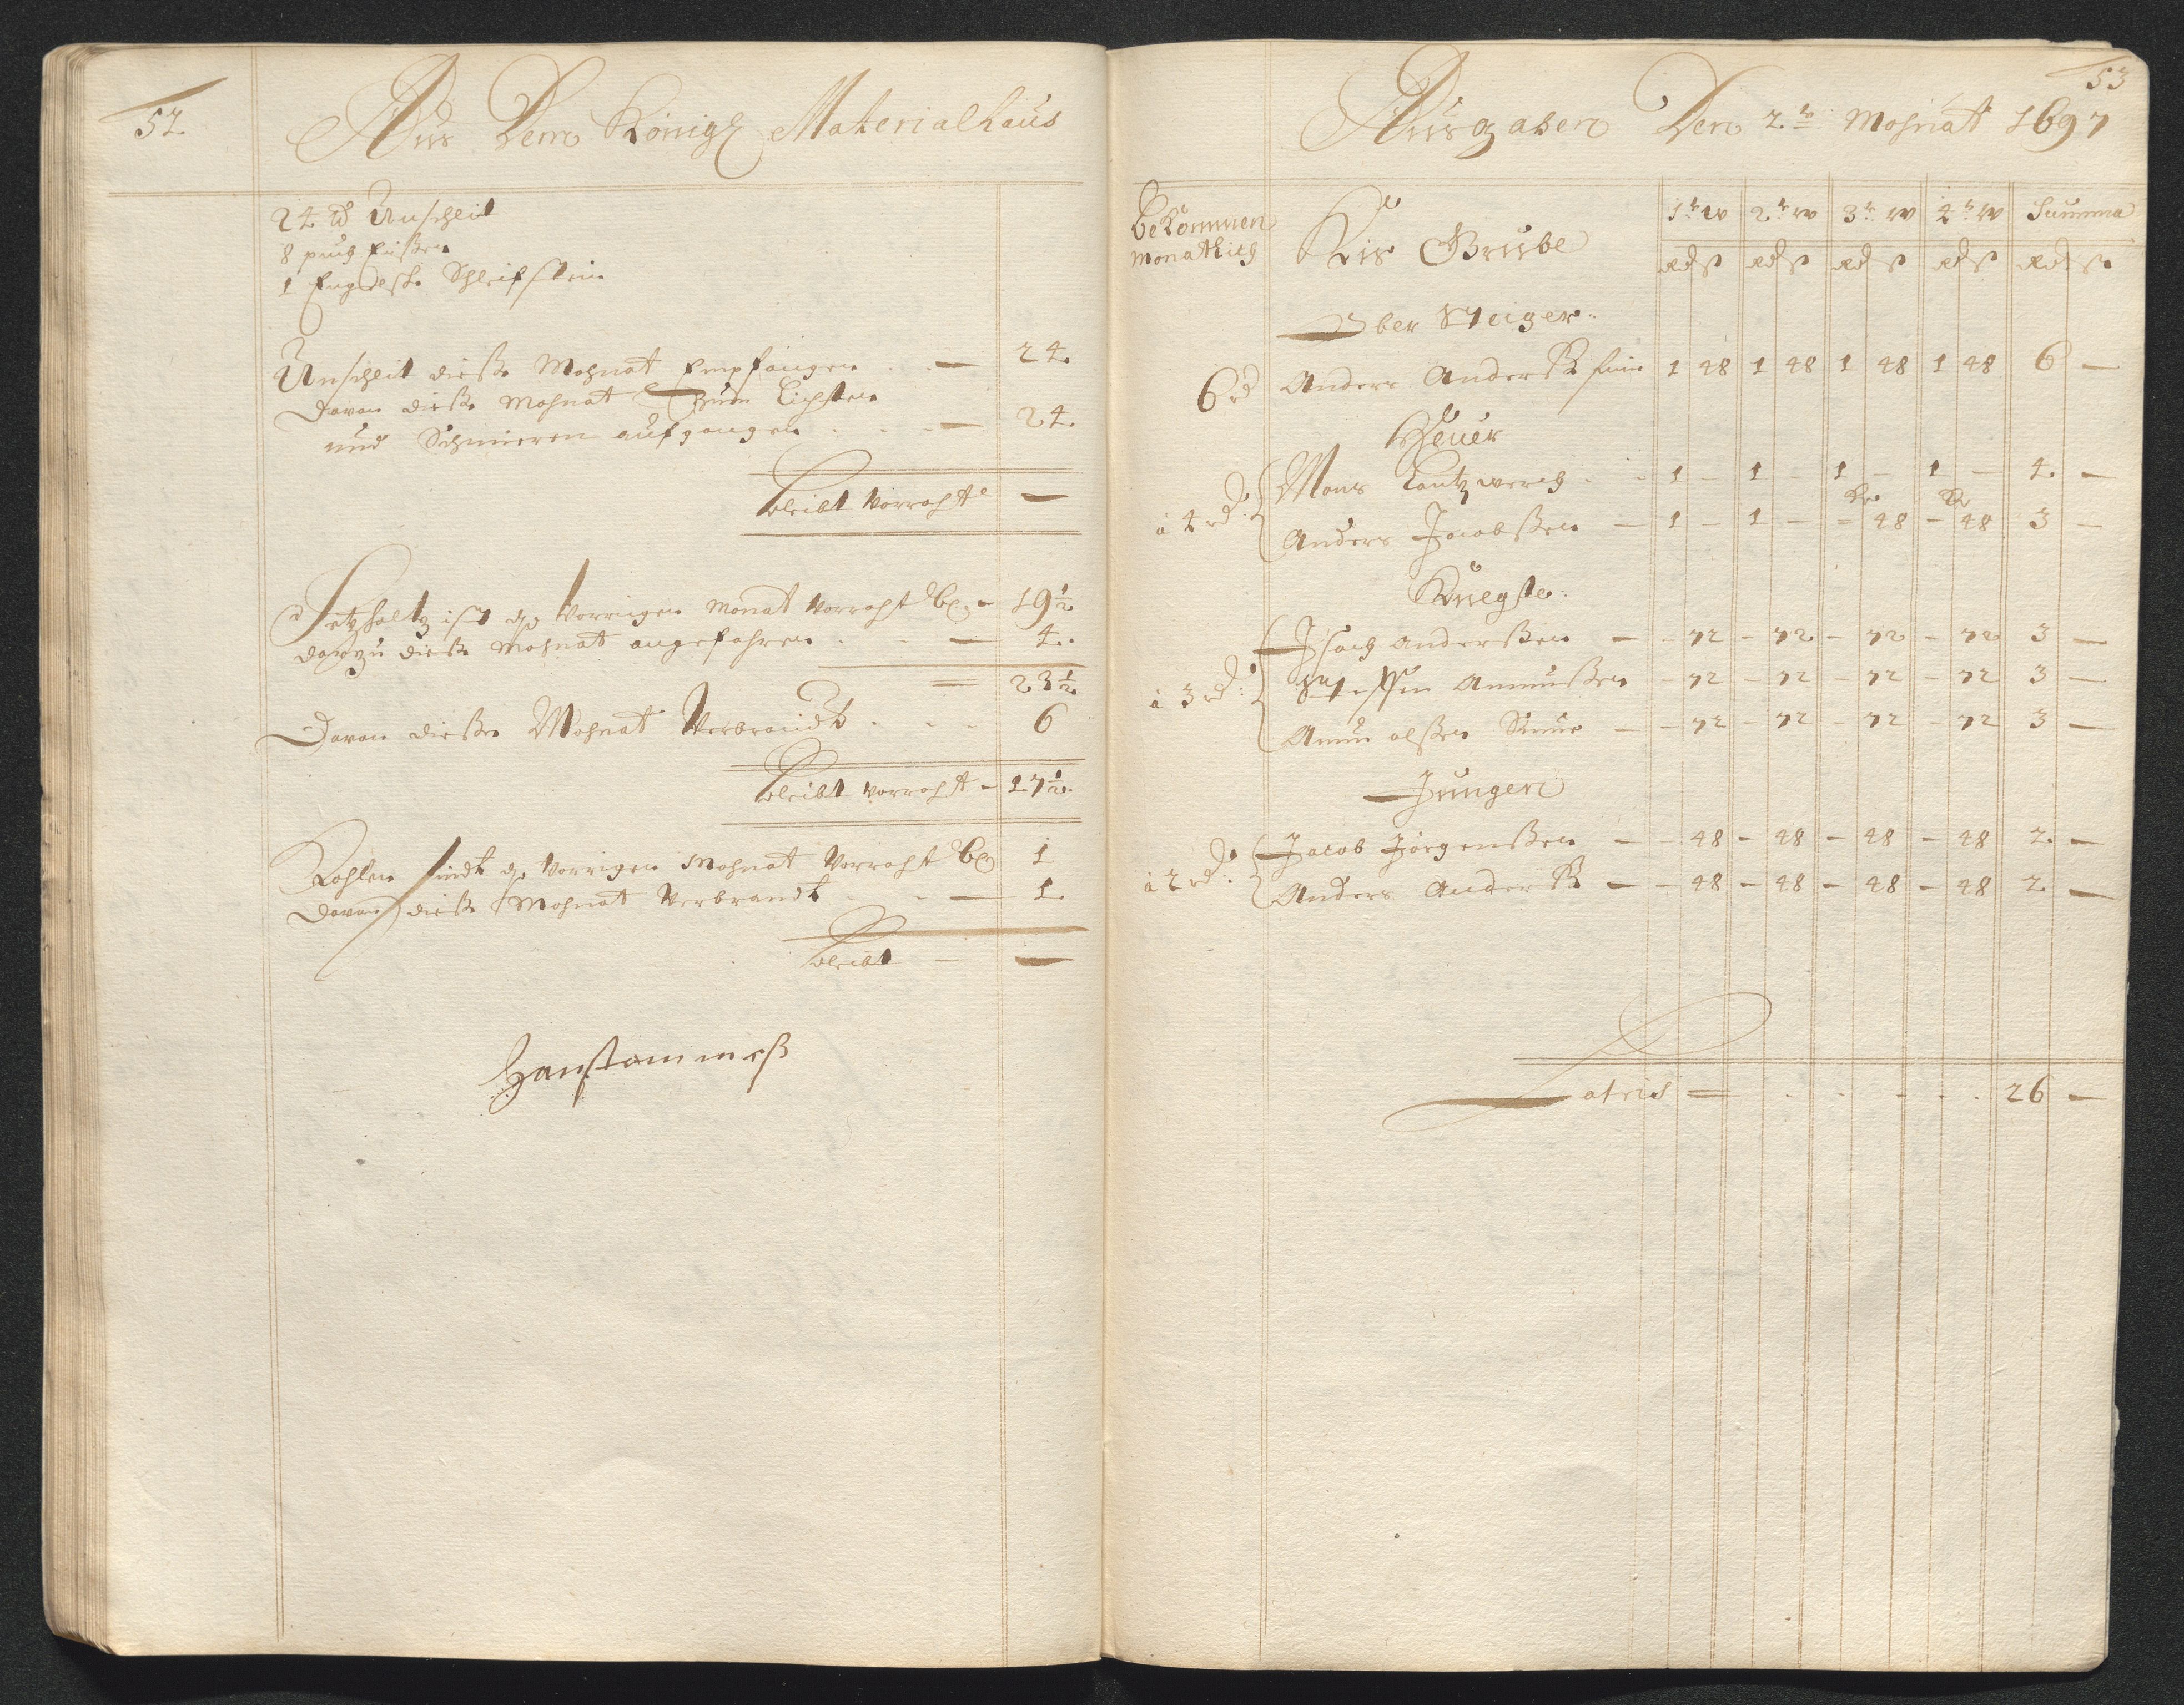 52
Aus Dem Königl Materialhaus
24 ℔ Unschlit
8 puch Eißen
1 Schleifstein
Unschlit dieße Mohnat Empfangen . . — 24.
Davon dieße Mohnat Zum Lichten
und Schmieren aufgangen . . . — 24.
bleibt Vorraht —
Setzholtz ist Vorrigen Monat Vorraht — 19½
darzu dieße Mohnat angefahren . . — 4.
= 23½
Davon dießen Mohnat Verbraucht . . . 6
bleibt Vorraht — 17½.
Kohlen sindt Vorrigen Mohnat Vorraht 1
Davon dieße Mohnat Verbrandt . . — 1.
bleibt — —
53
Ausgaben Den 2te Mohnat 1697
Bekommen
Monathlich
Kis Grube
1te w 2te w 3te w 4te w Summa
rd s rd s rd s rd s rd s
Ober Steiger:
6 rd Anders Anderß 1 48 1 48 1 48 1 48 6 —
Heuer
à 4 rd: Mons . . 1 – 1 – 1 – 1 – 4. —
Anders Jacobßen — 1 – 1 – – 48 – 48 3 —
Knegte:
à 3 rd: Isach Anderßen — – 72 – 72 – 72 – 72 3 —
Amunßen – 72 – 72 – 72 – 72 3 —
Amun olßen — – 72 – 72 – 72 – 72 3 —
Jungen
à 2 rd: Jacob Jörgenßen — – 48 – 48 – 48 – 48 2. —
Anders Anderß — – 48 – 48 – 48 – 48 2. —
Latris = . . . . . 26 —